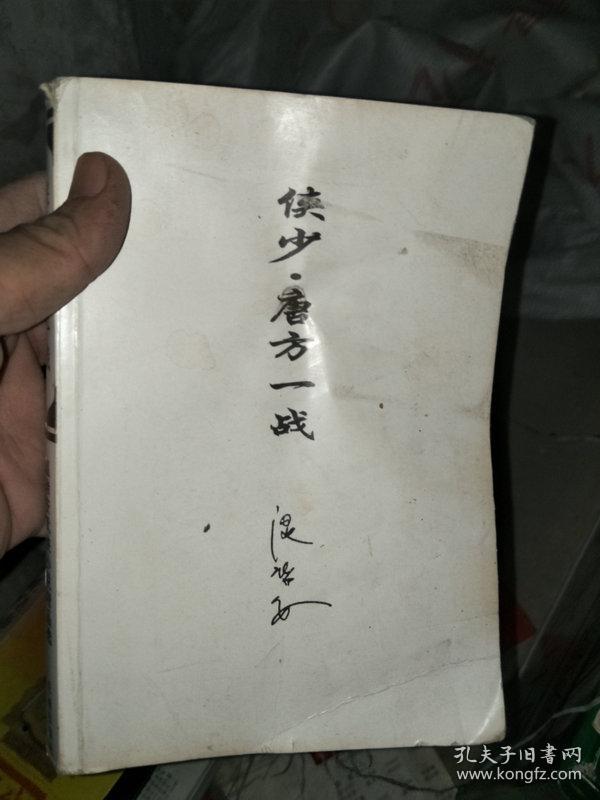 侠少·唐方一战
温瑞安
孔夫子旧書网
www.kongfz.com